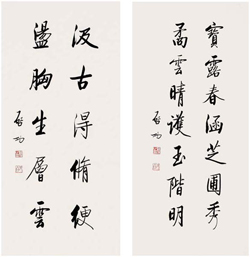 寶露春涵芝圃秀
矞雲晴護玉階明
启功
汲古得脩綆
盪胸生層雲
启功